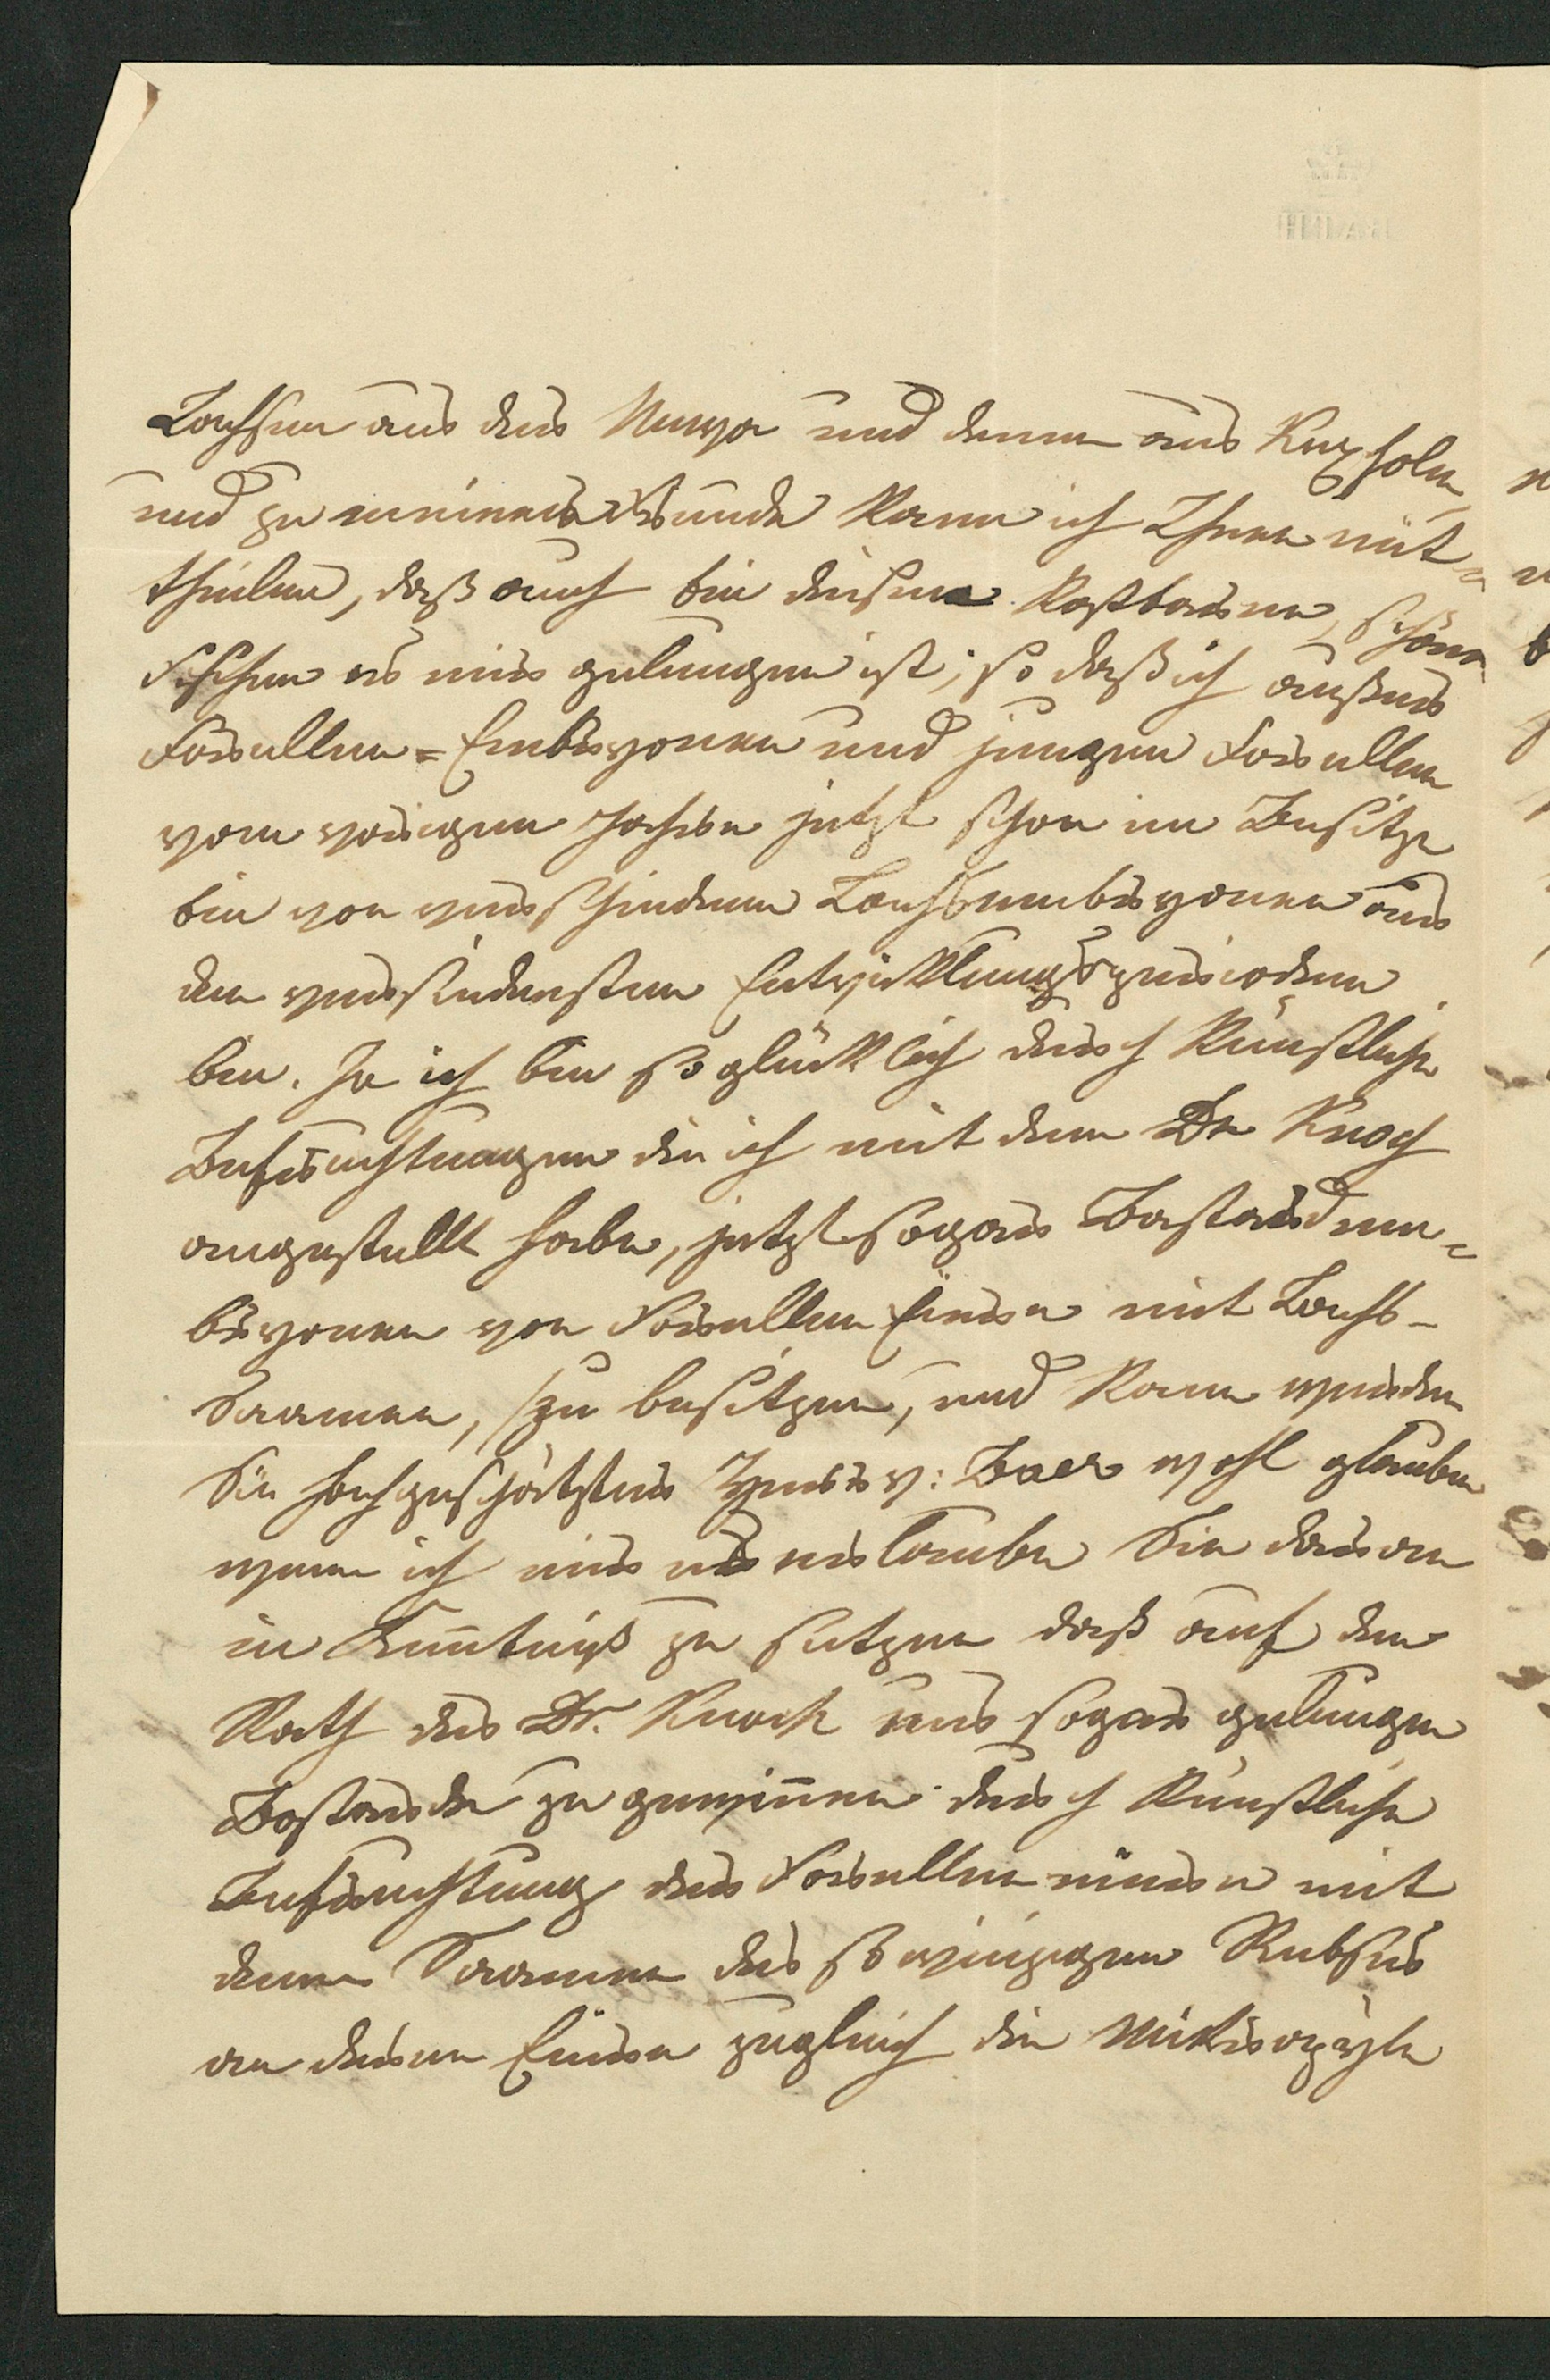 Lachsen aus der Newa und denen aus Kexholm
und zu meiner Freude kann ich Ihnen mit-
theilen, daß auch bei diesem kostbaren, schönen
Fischen es mir gelungen ist; so daß ich außer
Forellen-Embryonen und jungen Forellen
vom vorigen Jahre jetzt schon im Besitze
bin von verschiedenen Lachsembryonen aus
den verschiedensten Entwicklungsperioden
bin. Ja ich bin so glücklich durch künstliche
Befruchtungen die ich mit dem Dr Knoch
angestellt habe, jetzt sogar Bastardem-
bryonen von Forellen Eiern mit Lachs-
Saamen, zu besitzen, und kann werden
Sie hochgeschätzter Herr v: Baer wohl glauben
wenn ich mir es erlaube Sie davon
in Kenntniß zu setzen daß auf den
Rath des Dr. Knoch uns sogar gelungen
Bastarde zu gewinnen durch künstliche
Befruchtung der Forelleneier mit
dem Saamen des so winzigen Rebhs
an deren Eiern zugleich die Mikropyle